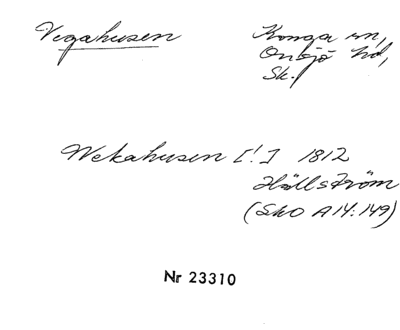 Vegahusen
Konga sn,
Onsjö hd,
Sk.
Wekahusen [!] 1812
Hällström
(SkO A14:149)
Nr 23310